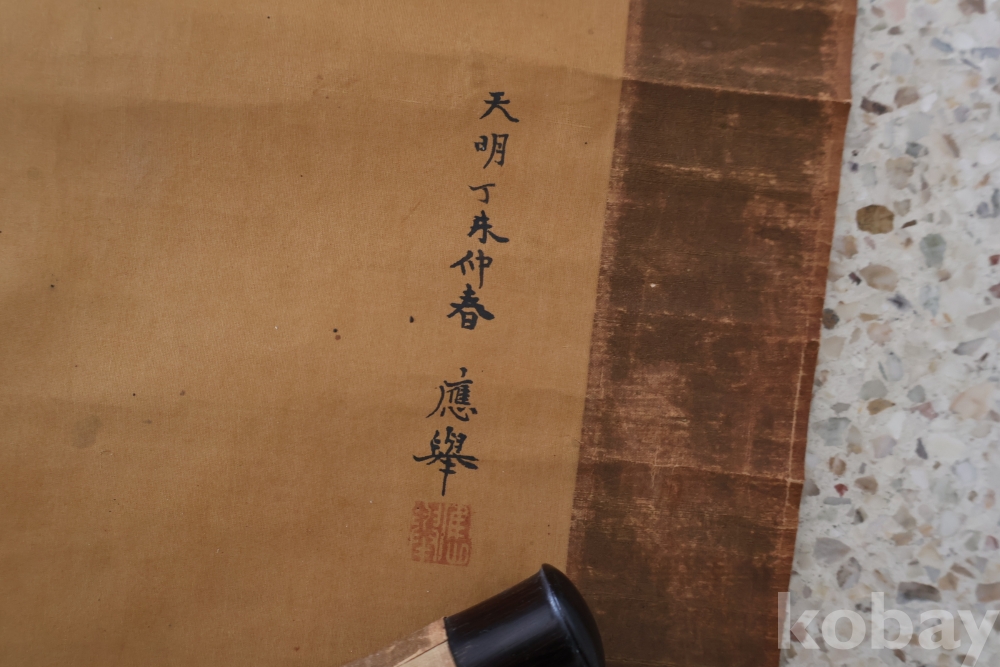 天明丁未仲春 應舉
kobay